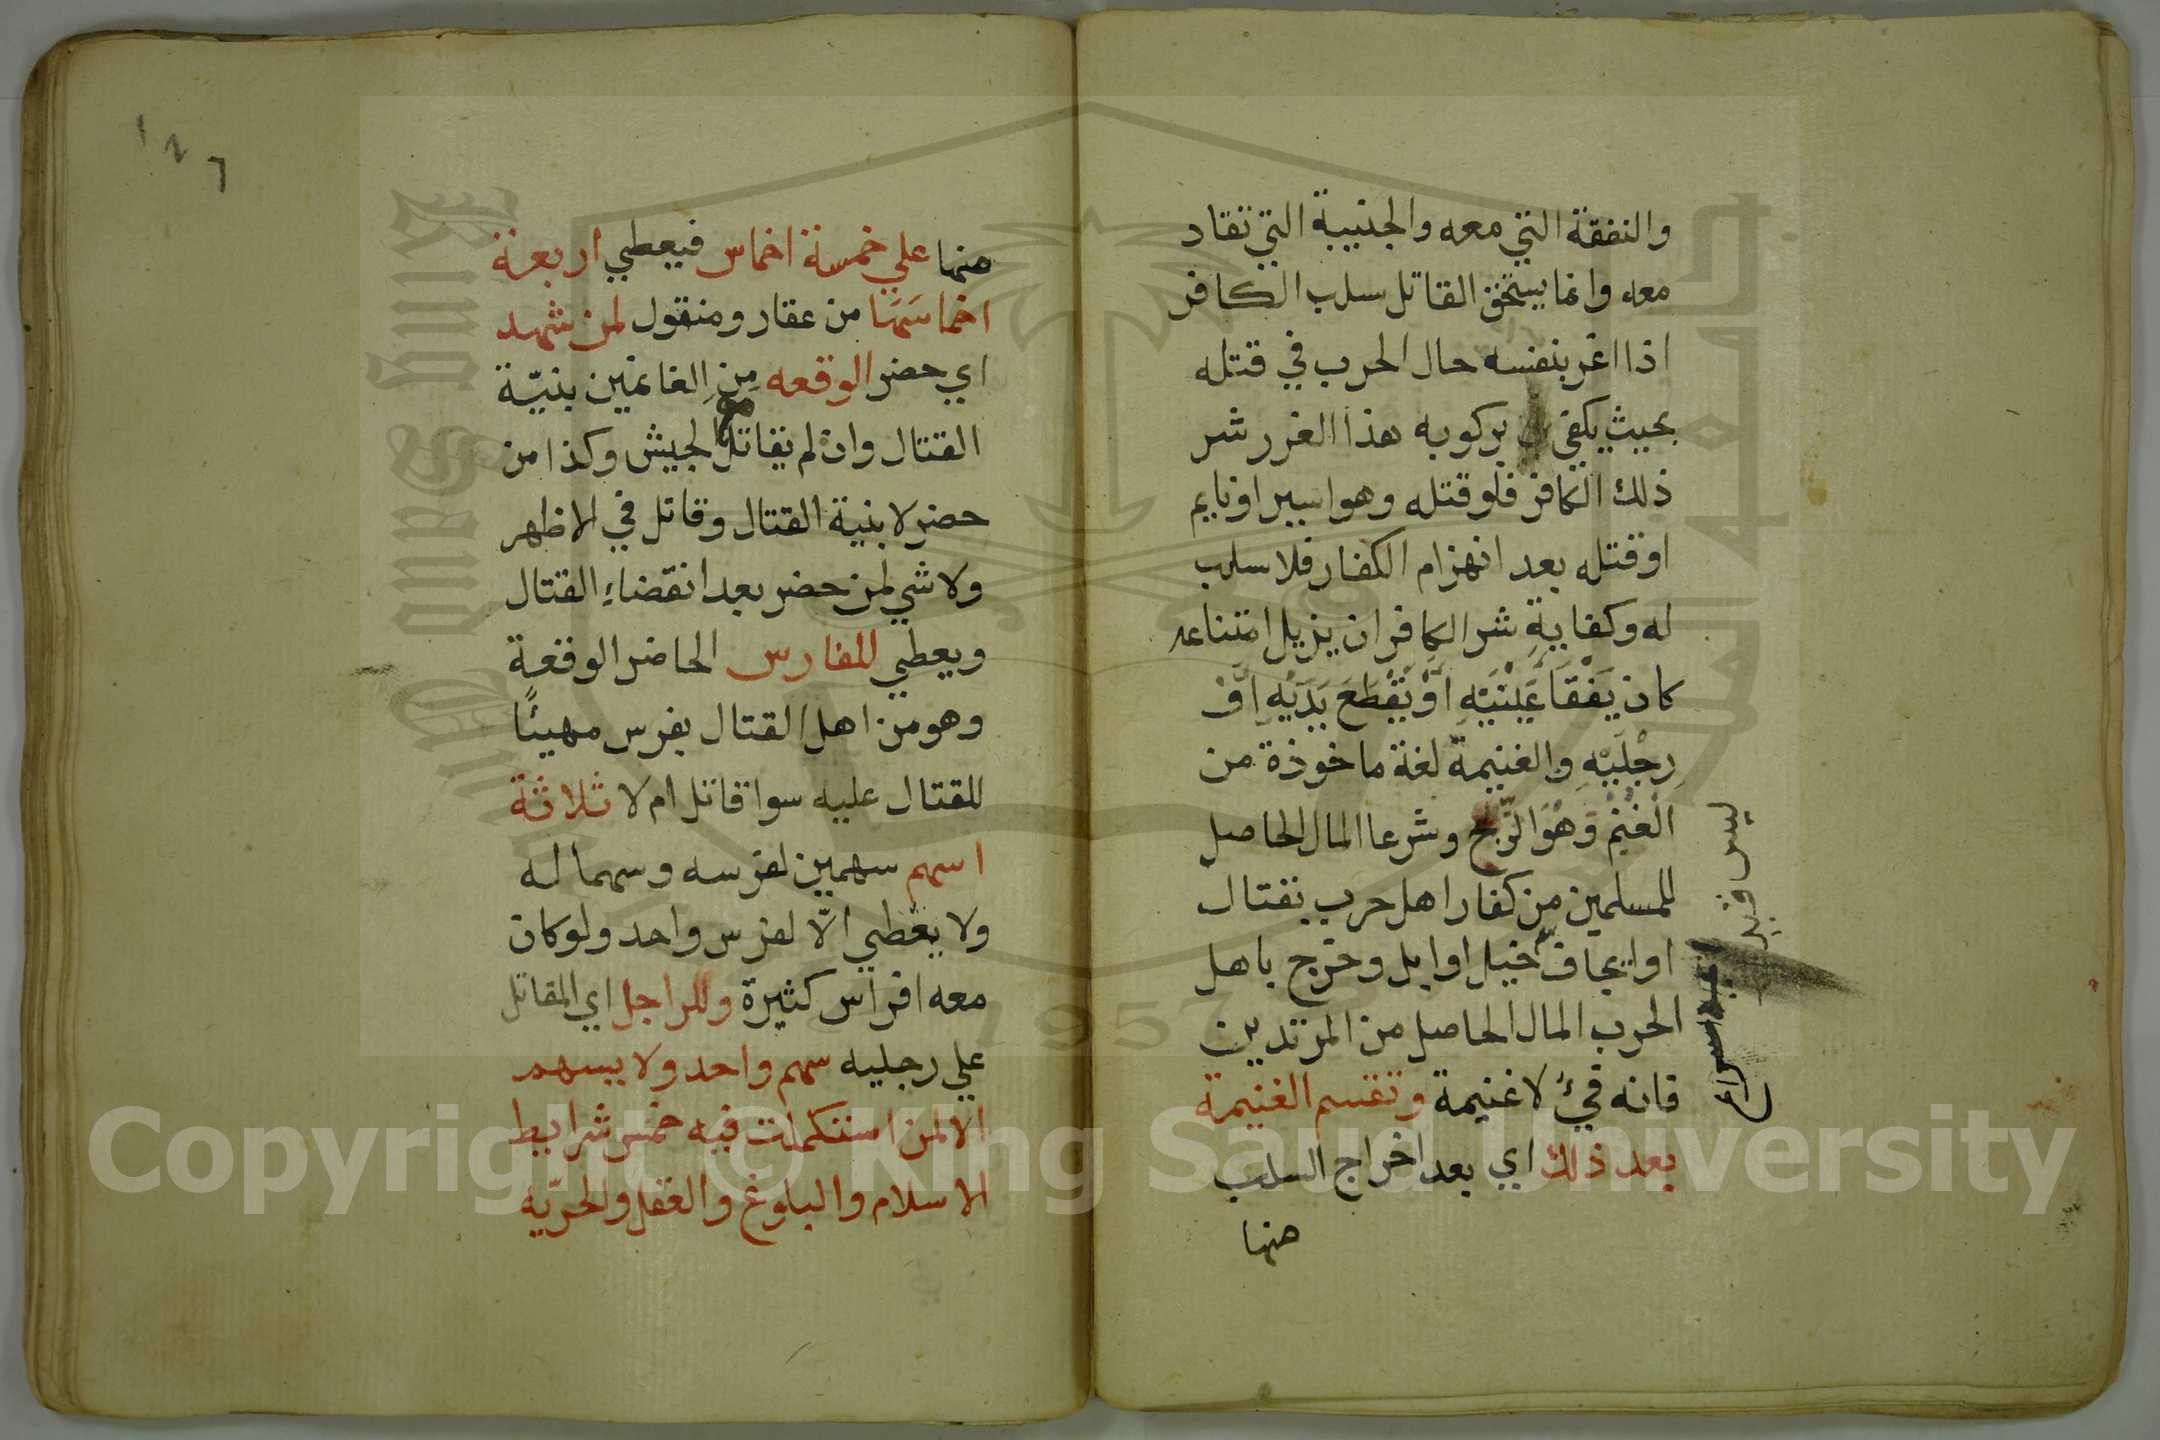 والنفقة التي معه والجنيبة التي تقاد
معه وانما يستحق القاتل سلب الكافر
اذا اغر بنفسه حال الحرب في قتله
بحيث يكفي بركوبه هذا الغرر شر
ذلك الكافر فلو قتله وهو اسير او نايم
او قتله بعد انهزام الكفار فلا سلب
له وكفاية شر الكافر ان يزيل امتناعه
كان يَفْقَأَ عَيْنَيْهِ اَوْ يَقْطَعَ يَدَيْهِ اَوْ
رِجْلَيْهِ والغنيمة لغة ماخوذة من
الْغُنْمِ وَهُوَ الرِّبْح وشرعا المال الحاصل
للمسلمين من كفار اهل حرب بقتال
او ايجاف خيل او ابل وخرج باهل
الحرب المال الحاصل من المرتدين
فانه فيءٌ لا غنيمة وتقسم الغنيمة
بعد ذلك اي بعد اخراج السلب
منها
ليس فيه
١٢٦
منها علي خمسة اخماس فيعطي اربعة
اخماسها من عقار ومنقول لمن شهد
اي حضر الوقعه مِنِ الغانمين بنيّة
القتال وان لم يقاتل مع الجيش وكذا من
حضر لا بنية القتال وقاتل في الاظهر
ولا شي لمن حضر بعد انقضاء القتال
ويعطي للفارس الحاضر الوقعة
وهو من اهل القتال بفرس مهيئًا
للقتال عليه سوا قاتل ام لا ثلاثة
اسهم سهمين لفرسه وسهما له
ولا يعطي الّا لفرس واحد ولو كان
معه افراس كثيرة وللراجل اي المقاتل
علي رجليه سهم واحد ولا يسهم
الا لمن استكملت فيه خمس شرايط
الاسلام والبلوغ والعقل والحرّيه
King Saud University
1957
Copyright © King Saud University